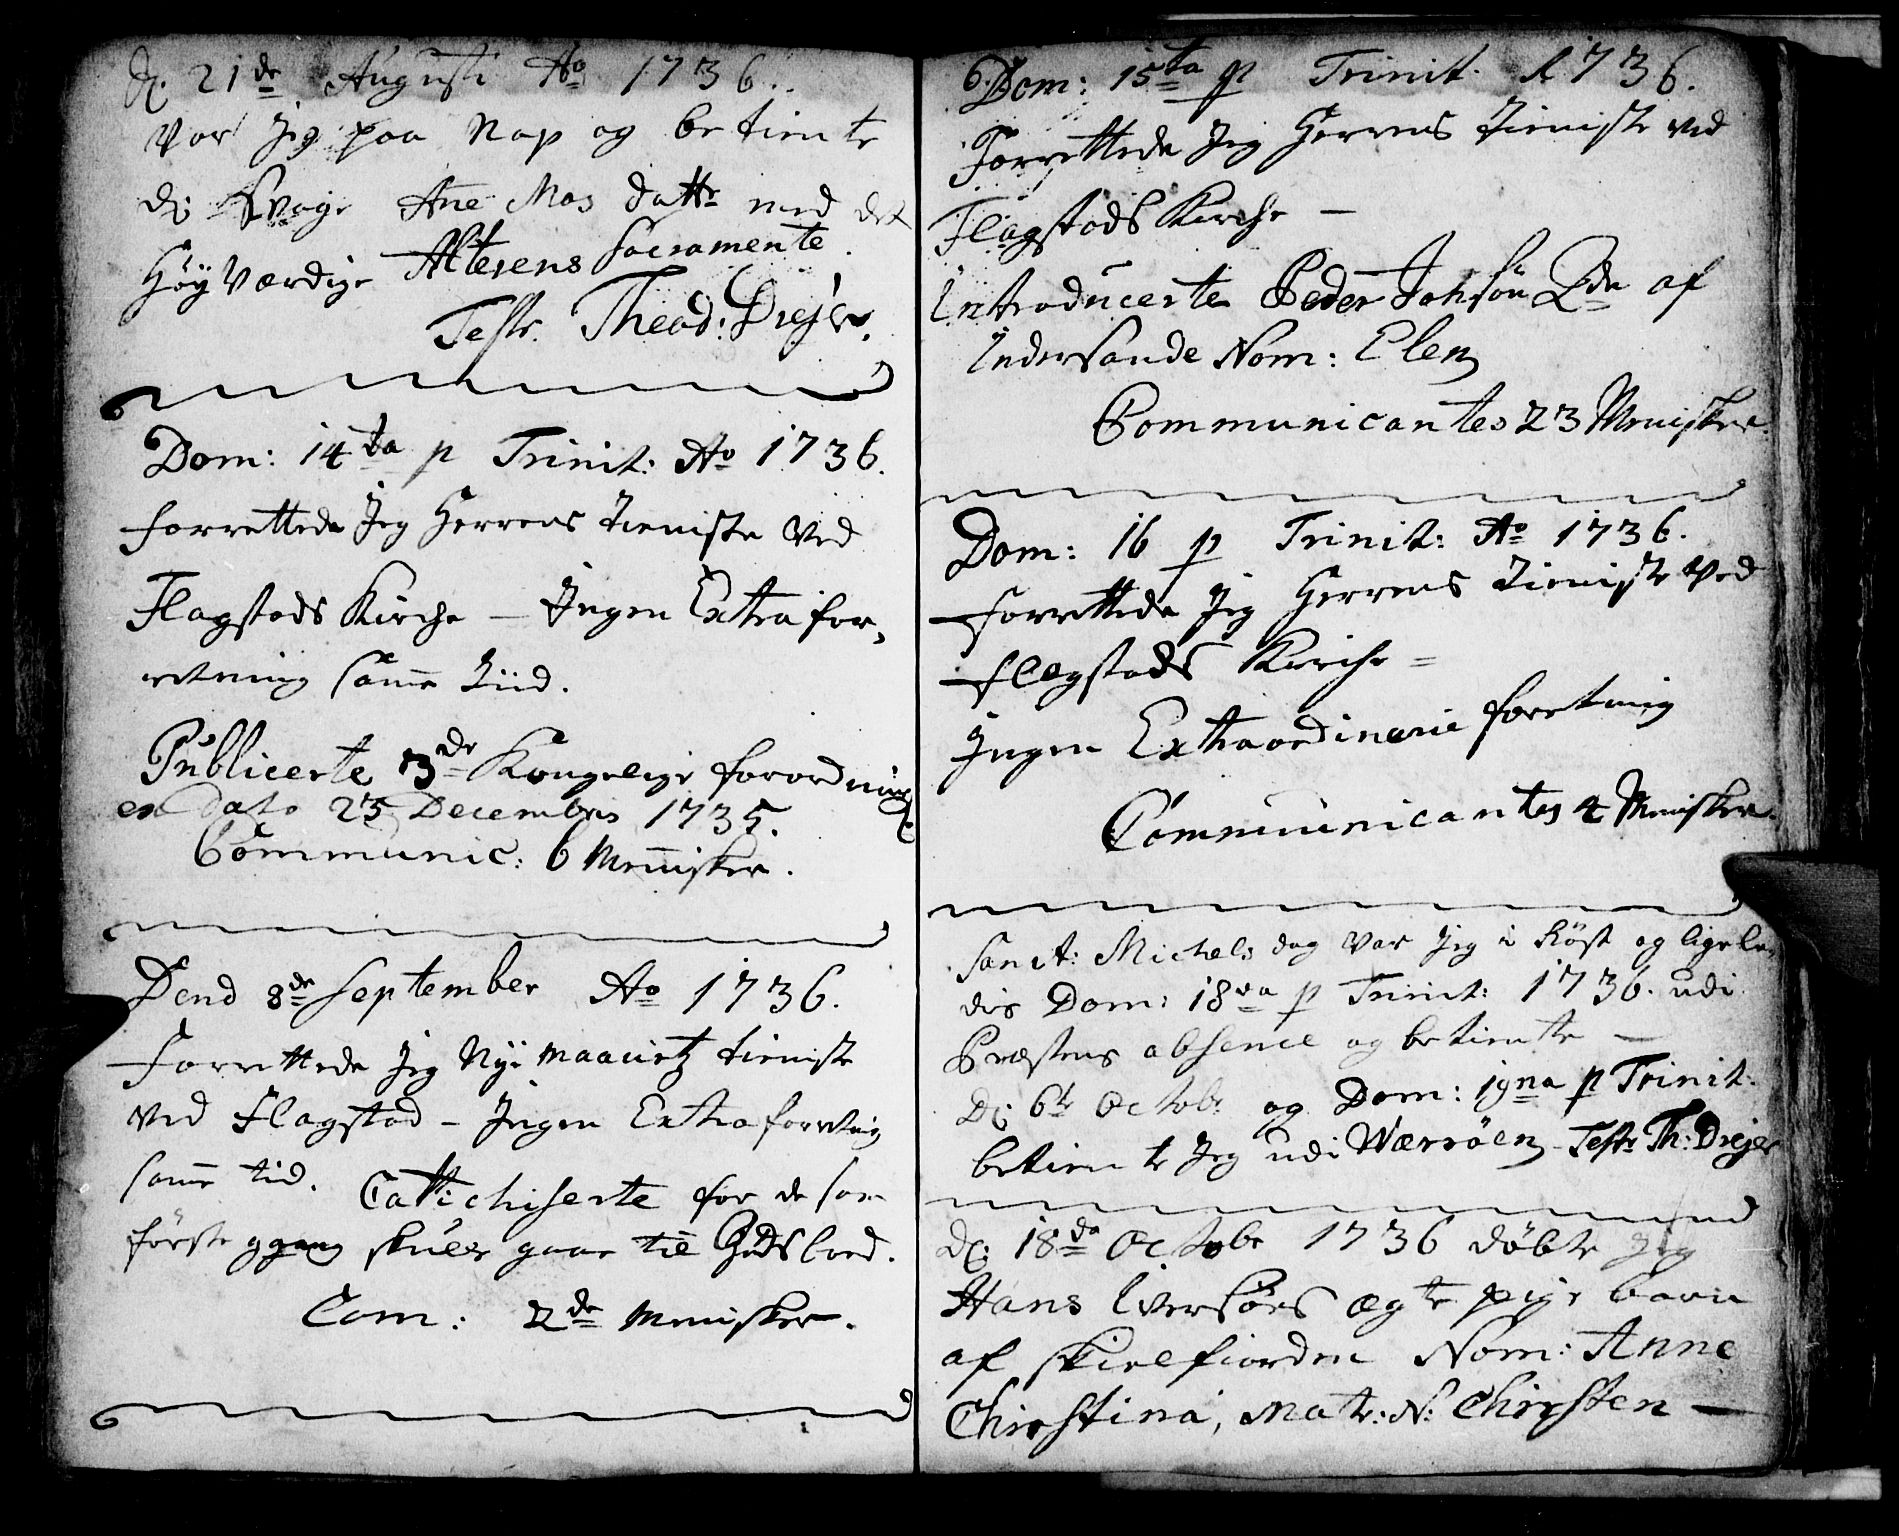 d. 21de Augusti Ao 1736.
Var Jeg paa Nap og betiente
d. Svage Ane Mos dattr med det
Höyværdige Alterens Sacramente.
Testr. Theod: Drejer.
Dom: 14ta p Trinit: Ao 1736.
forrettede Jeg Herrens Tieniste Ved
Flagstads Kirche – Ingen Extra for,
retning samme Tiid.
Publicerte 3de Kongelige forordning
dato 23 Decembris 1735.
Communic: 6 Mennisker.
Dend 8de September Ao 1736.
Forrettede Jeg Nye maanetz tieniste
Ved Flagstad – Ingen Extra forretnig
samme tid. Catichiserte for de som
förste ggang skuer gaar til Gudsbord.
Com: 2de Mennisker.
Dom: 15ta p Trinit. A 1736.
Forrettede Jeg Herrens Tieniste ved
Flagstads Kirche –
Introducerte Peder Johsön Qde af
Indersande Nom: Elen
Communicantes 23 Mennisker.
Dom: 16 p Trinit: Ao 1736.
forrettede Jeg Herrens Tieniste Ved
flagstads Kirche =
Ingen Extraordinarie forretning
Communicantes 4 Mennisker.
Sanct: Michels dag Var Jeg i Röst og ligele,
dis Dom: 18va p Trinit: 1736. udi
Præstens absence og betiente –
D. 6te Octobr og Dom: 19na p Trinit:
betiente Jeg udi Værröen – Testr Th: Drejer
D. 18de Octobr 1736 döbte Jeg
Hans Iversöns ægte pige barn
af Skielfiorden Nom: Anne
Chirstina, Matr: N: Chirsten –